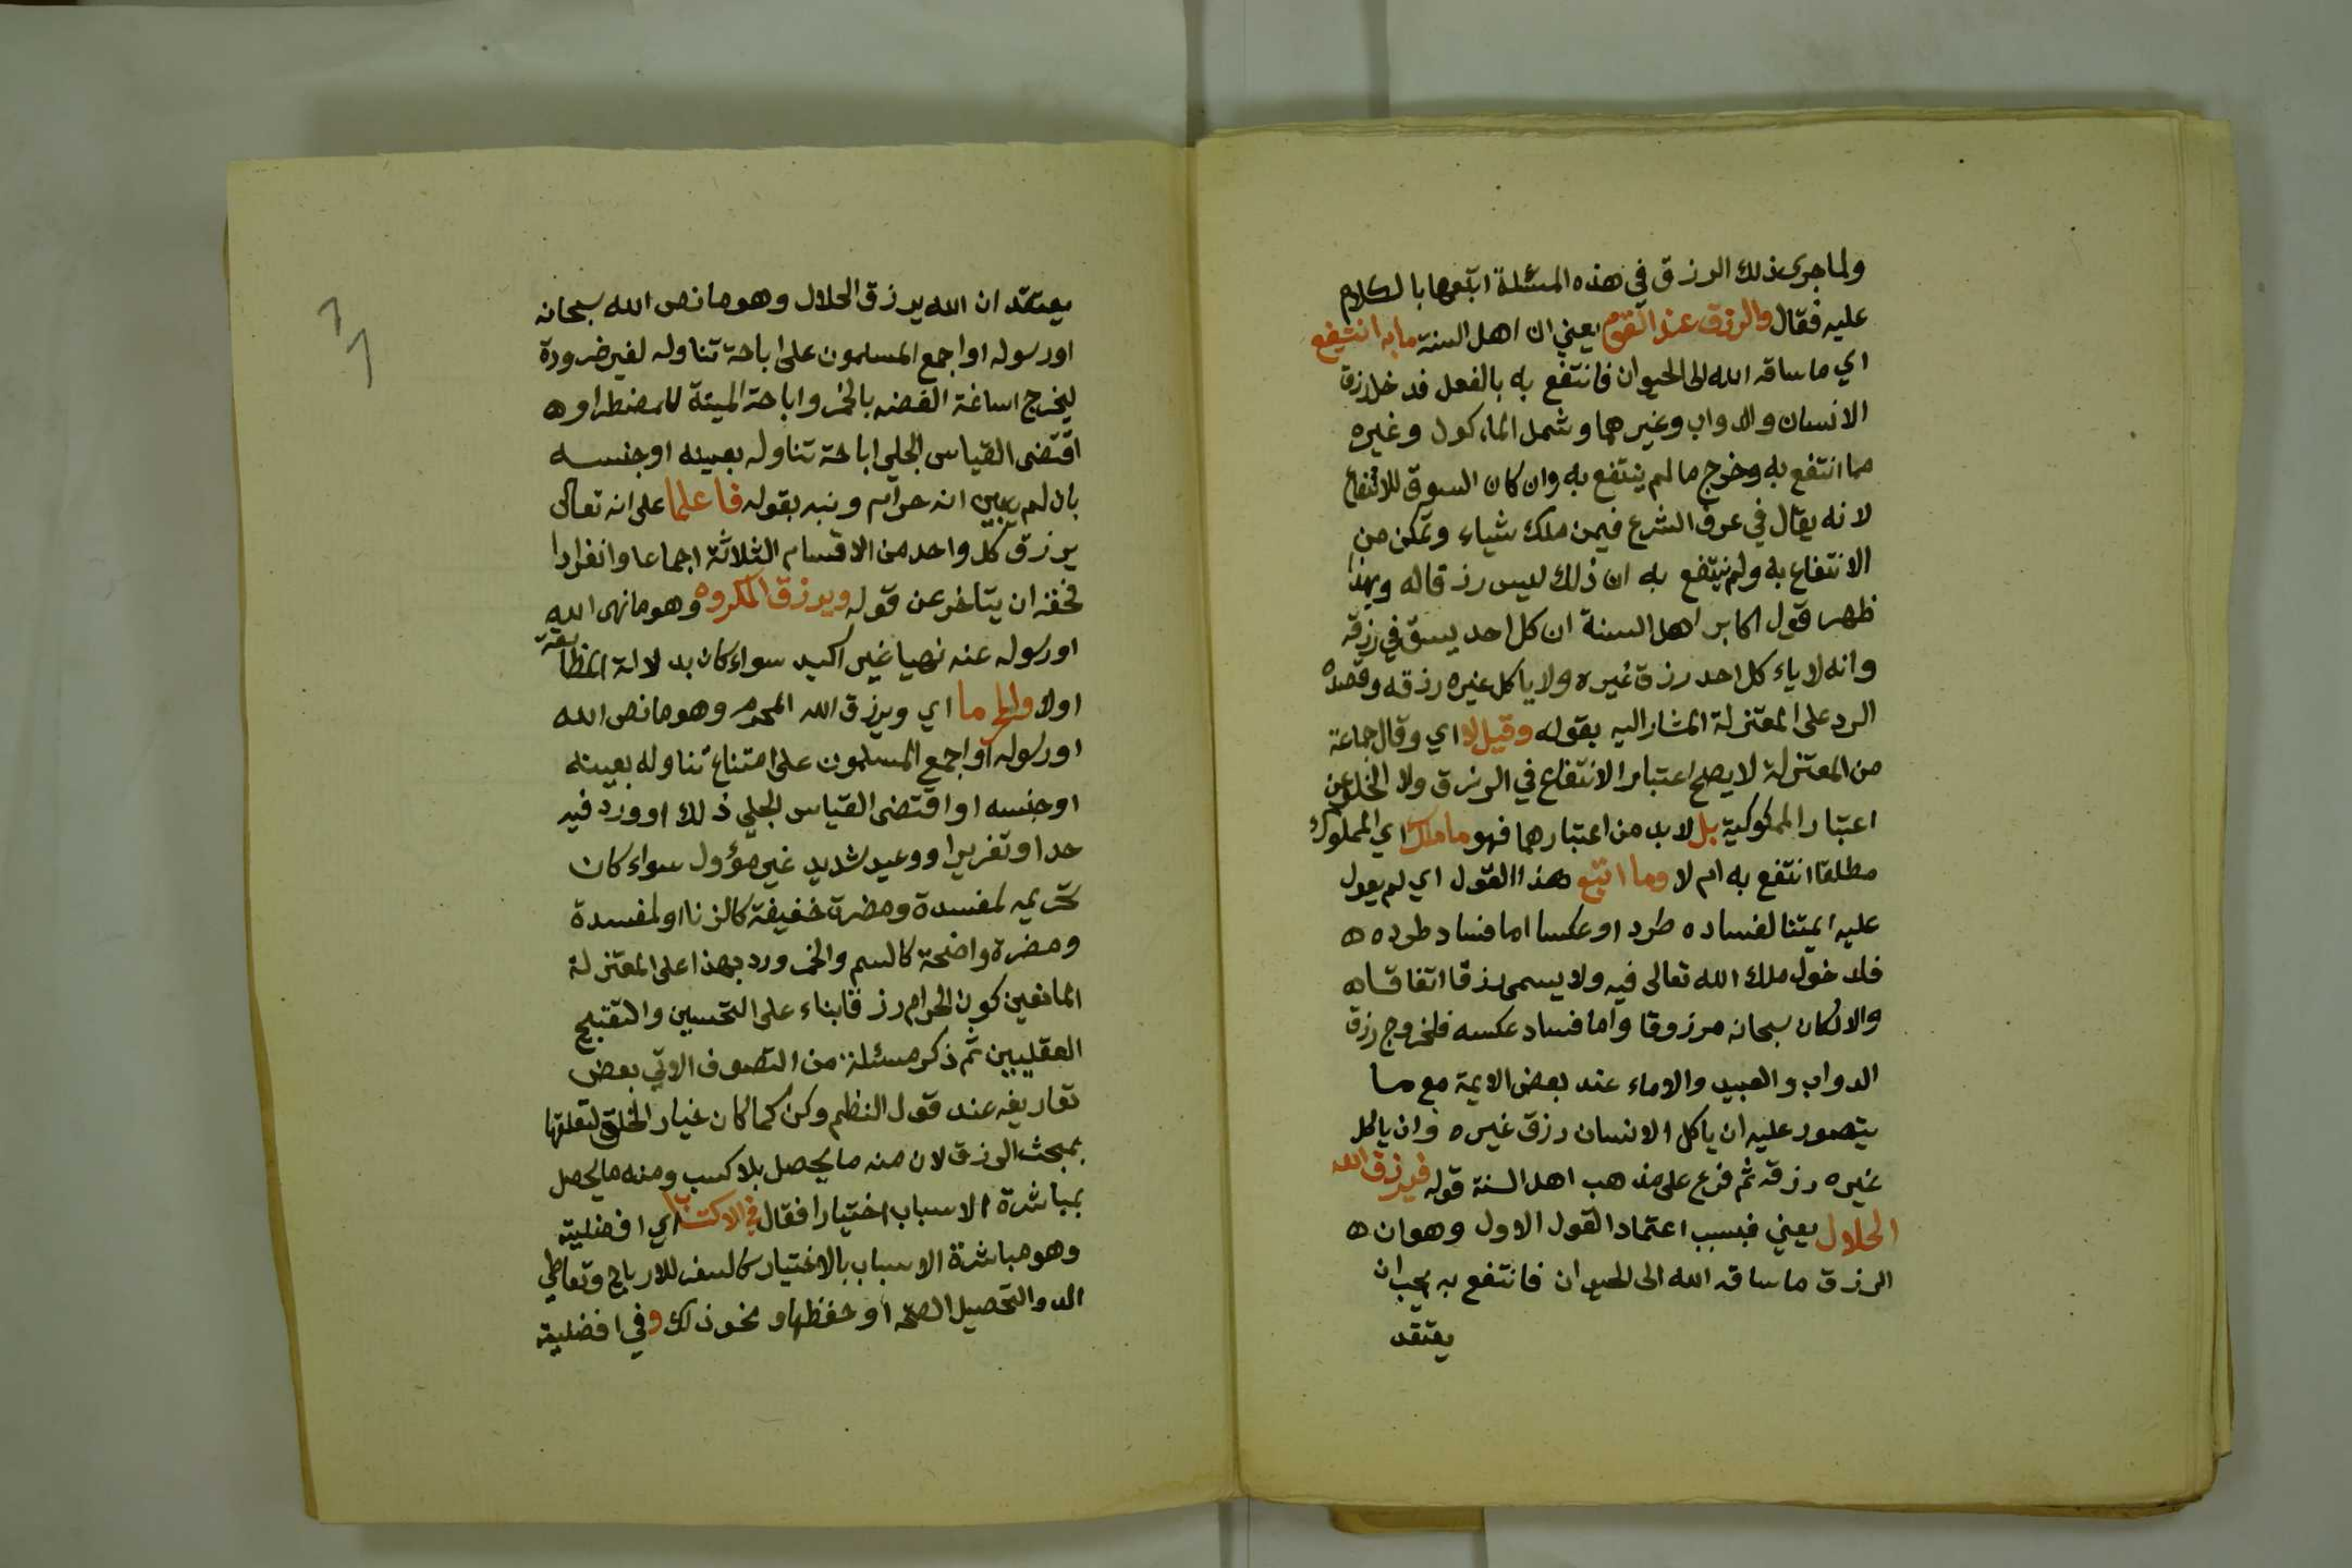 ولما جرى ذلك الرزق في هذه المسئلة اتبعها بالكلام
عليه فقال والرزق عند القوم يعني ان اهل السنة ما به انتفع
اي ما ساقه الله الى الحيوان فانتفع به بالفعل فدخل رزق
الانسان والدواب وغيرهما وشمل الماكول وغيره
مما انتفع به وخرج ما لم ينتفع به وان كان السوق للانتفاع
لانه يقال في عرف الشرع فيمن ملك شياء وتمكن من
الانتفاع به ولم ينتفع به ان ذلك ليس رزقا له وبهذا
ظهر قول اكابر اهل السنة ان كل احد يستوفي رزقه
وانه لا ياءكل احد رزق غيره ولا ياكل غيره رزقه وقصده
الرد على المعتزلة المشار اليه بقوله وقيل لا اي وقال جماعة
من المعتزلة لا يصلح اعتبار الانتفاع في الرزق ولا الخلو عن
اعتبار المملوكية بل لابد من اعتبارهما فهو ما ملك اي المملوك
مطلقا انتفع به ام لا وما اتبع هذا القول اي لم يعول
عليه ايمتنا لفساده طردا وعكسا اما فساد طرده ه
فلدخول ملك الله تعالى فيه ولا يسمى رزقا اتفاقا ه
والا لكان سبحانه مرزوقا واما فساد عكسه فلخروج رزق
الدواب والعبيد والاماء عند بعض الايمة مع ما
يتصور عليه ان ياكل الانسان رزق غيره وان ياكل
غيره رزقه ثم فرع على مذهب اهل السنة قوله فيرزق الله
الحلال يعني فبسبب اعتماد القول الاول وهو ان ه
الرزق ما ساقه الله الى الحيوان فانتفع به يجب ان
يعتقد
يعتقد ان الله يرزق الحلال وهو ما نص الله سبحانه
او رسوله او اجمع المسلمون على اباحة تناوله لغير ضرورة
ليخرج اساغة الغصه بالخمر واباحة الميتة للمضطر او ه
اقتضى القياس الجلي اباحة تناوله بعينه او جنسه
بان لم يبين انه حرام ونبه بقوله فاعلما على انه تعالى
يرزق كل واحد من الاقسام الثلاثة اجماعا وانفرادا
فحقه ان يتاخر عن قوله ويرزق المكروه وهو ما نهى الله
او رسوله عنه نهيا غير اكيد سواء كان بدلالة المطابقة
اولا والمحرما اي ويرزق الله المحرم وهو ما نص الله
او رسوله او اجمع المسلمون على امتناع تناوله بعينه
او جنسه او اقتضى القياس الجلي ذلك او ورد فيه
حد او تعزيرا ووعيد شديد غير مؤول سواء كان
تحريمه لمفسدة ومضرة خفيفة كالزنا او لمفسدة
ومضرة واضحة كالسم والخمر ورد بهذا على المعتزلة
المانعين كون الحرام رزقا بناء على التحسين والتقبيح
العقليين ثم ذكر مسئلة من التصوف الاتي بعض
تعاريفه عند قول النظم وكن كما كان خيار الخلق لتعلقها
بمبحث الرزق لان منه ما يحصل بلا كسب ومنه ما يحصل
بمباشرة الاسباب اختيارا فقال في الاكتساب اي افضلية
وهو مباشرة الاسباب بالاختيار كالسفر للارباح وتعاطي
الدوا لتحصيل الصحة او حفظها ونحو ذلك وفي افضلية